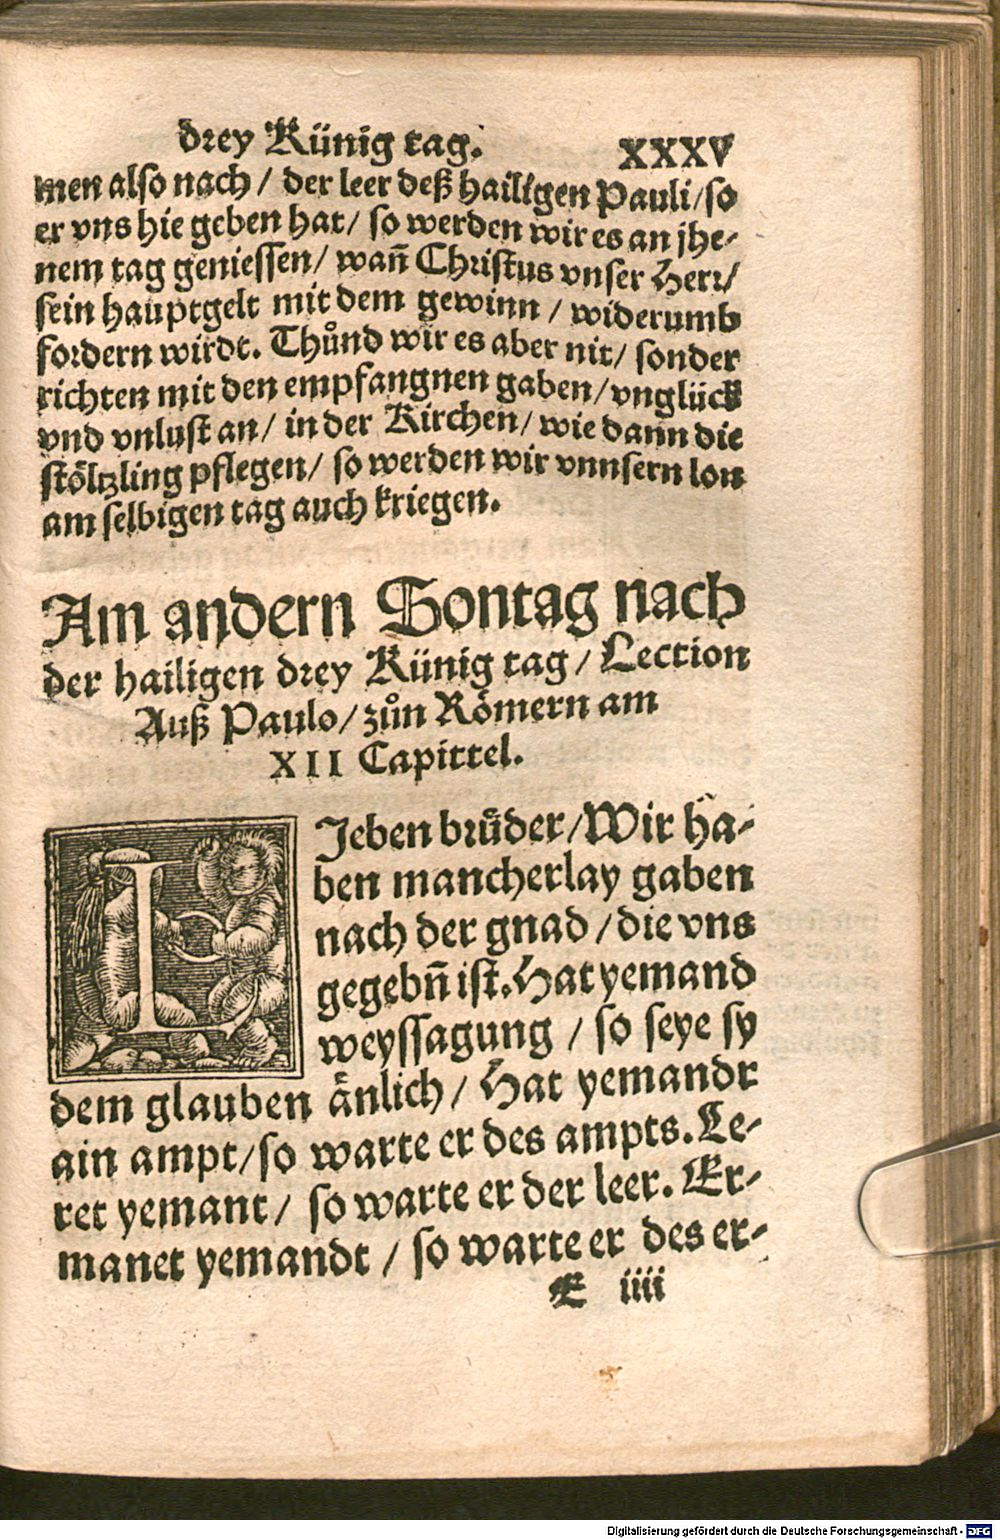 drey Künig tag. XXXV
men also nach / der leer deß hailigen Pauli / so
er vns hie geben hat / so werden wir es an jhe-
nem tag geniessen / wañ Christus vnser Herr /
sein hauptgelt mit dem gewinn / widerumb
fordern wirdt. Thůnd wir es aber nit / sonder
richten mit den empfangnen gaben / vnglück
vnd vnlust an / in der Kirchen / wie dann die
stöltzling pflegen / so werden wir vnnsern lon
am selbigen tag auch kriegen.
Am andern Sontag nach
der hailigen drey Künig tag / Lection
Auß Paulo / zůn Römern am
XII Capittel.
LIeben brüder / Wir ha-
ben mancherlay gaben
nach der gnad / die vns
gegebñ ist. Hat yemand
weyssagung / so seye sy
dem glauben änlich / Hat yemandt
ain ampt / so warte er des ampts. Le-
ret yemant / so warte er der leer. Er-
manet yemandt / so warte er des er-
E iiij
Digitalisierung gefördert durch die Deutsche Forschungsgemeinschaft - DFG